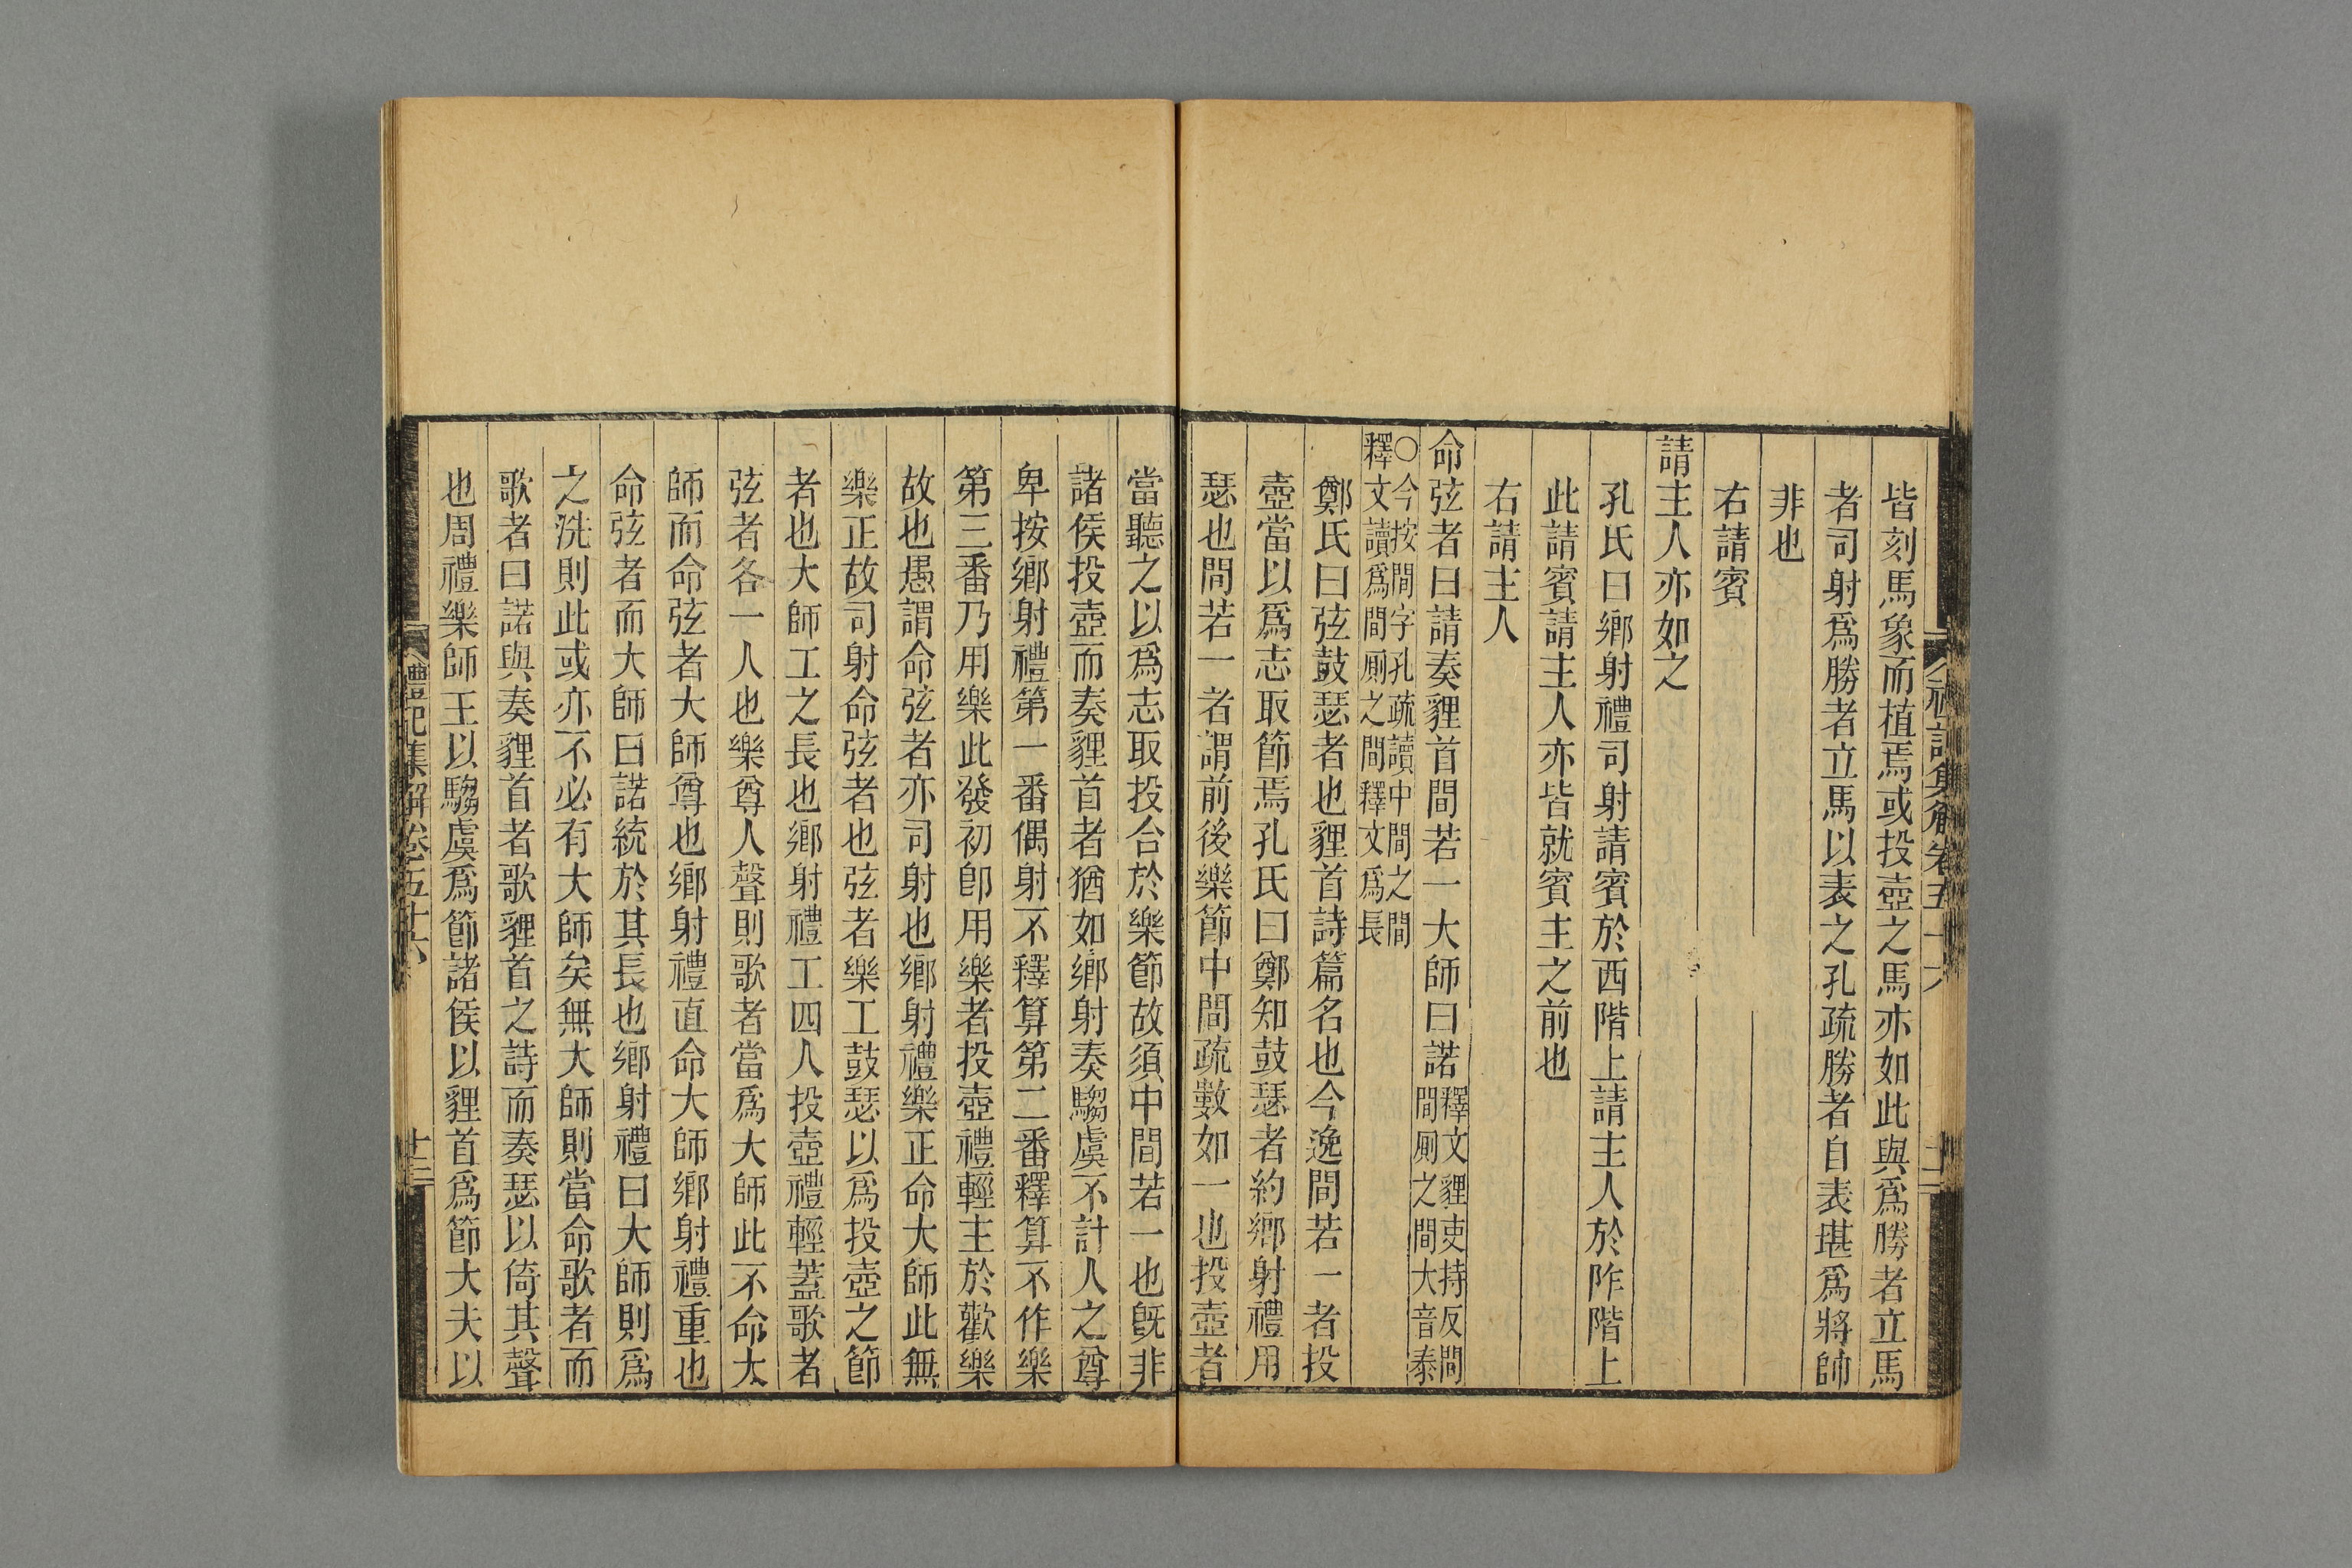 皆刻馬象而植焉或投壺之馬亦如此與爲勝者立馬
者司射爲勝者立馬以表之孔疏勝者自表堪爲將帥
非也
右請賓
請主人亦如之
孔氏曰鄉射禮司射請賓於西階上請主人於阼階上
此請賓請主人亦皆就賓主之前也
右請主人
命弦者曰請奏貍首間若一大師曰諾釋文貍吏持反間
間厠之間大音泰
○今按間字孔疏讀中間之間
釋文讀爲間厠之間釋文爲長
鄭氏曰弦鼓瑟者也貍首詩篇名也今逸間若一者投
壺當以爲志取節焉孔氏曰鄭知鼓瑟者約鄉射禮用
瑟也間若一者謂前後樂節中間疏數如一也投壺者
當聽之以爲志取投合於樂節故須中間若一也旣非
諸侯投壺而奏貍首者猶如鄉射奏騶虞不計人之尊
卑按鄉射禮第一番偶射不釋算第二番釋算不作樂
第三番乃用樂此發初卽用樂者投壺禮輕主於歡樂
故也愚謂命弦者亦司射也鄉射禮樂正命大師此無
樂正故司射命弦者也弦者樂工鼓瑟以爲投壺之節
者也大師工之長也鄉射禮工四人投壺禮輕蓋歌者
弦者各一人也樂尊人聲則歌者當爲大師此不命大
師而命弦者大師尊也鄉射禮直命大師鄉射禮重也
命弦者而大師曰諾統於其長也鄉射禮曰大師則爲
之洗則此或亦不必有大師矣無大師則當命歌者而
歌者曰諾與奏貍首者歌貍首之詩而奏瑟以倚其聲
也周禮樂師王以騶虞爲節諸侯以貍首爲節大夫以
禮記集解卷五十六